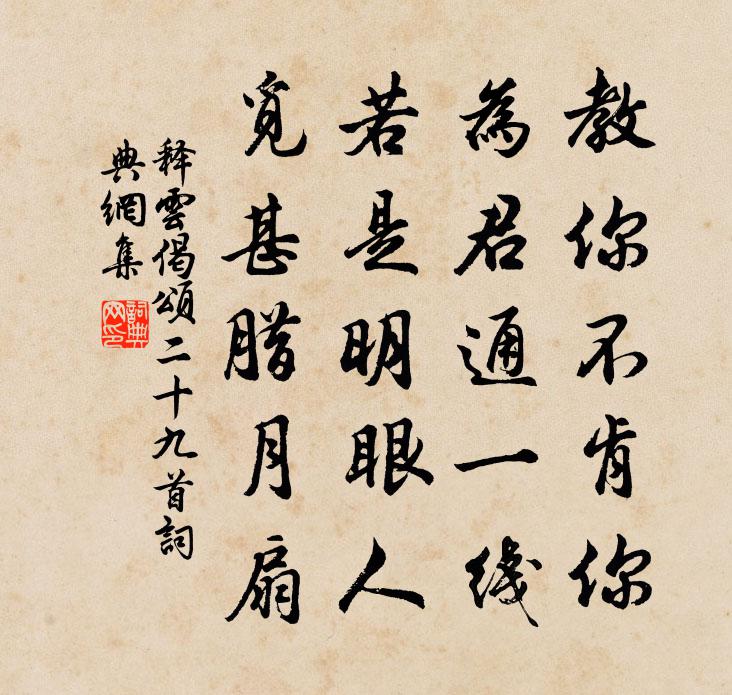 教你不肯你
為君通一线
若是明眼人
覓甚腊月扇
释雲偈頌二十九首詞
典網集
詞典网印